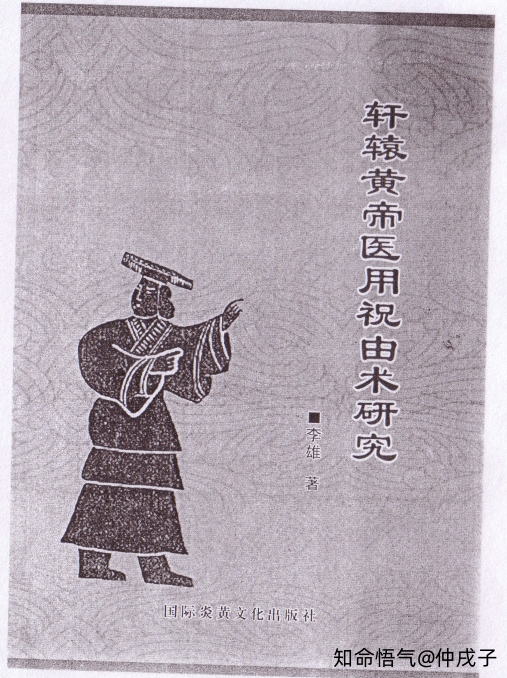 轩辕黄帝医用祝由术研究
■李雄 著
国际炎黄文化出版社
知命悟气@仲戌子